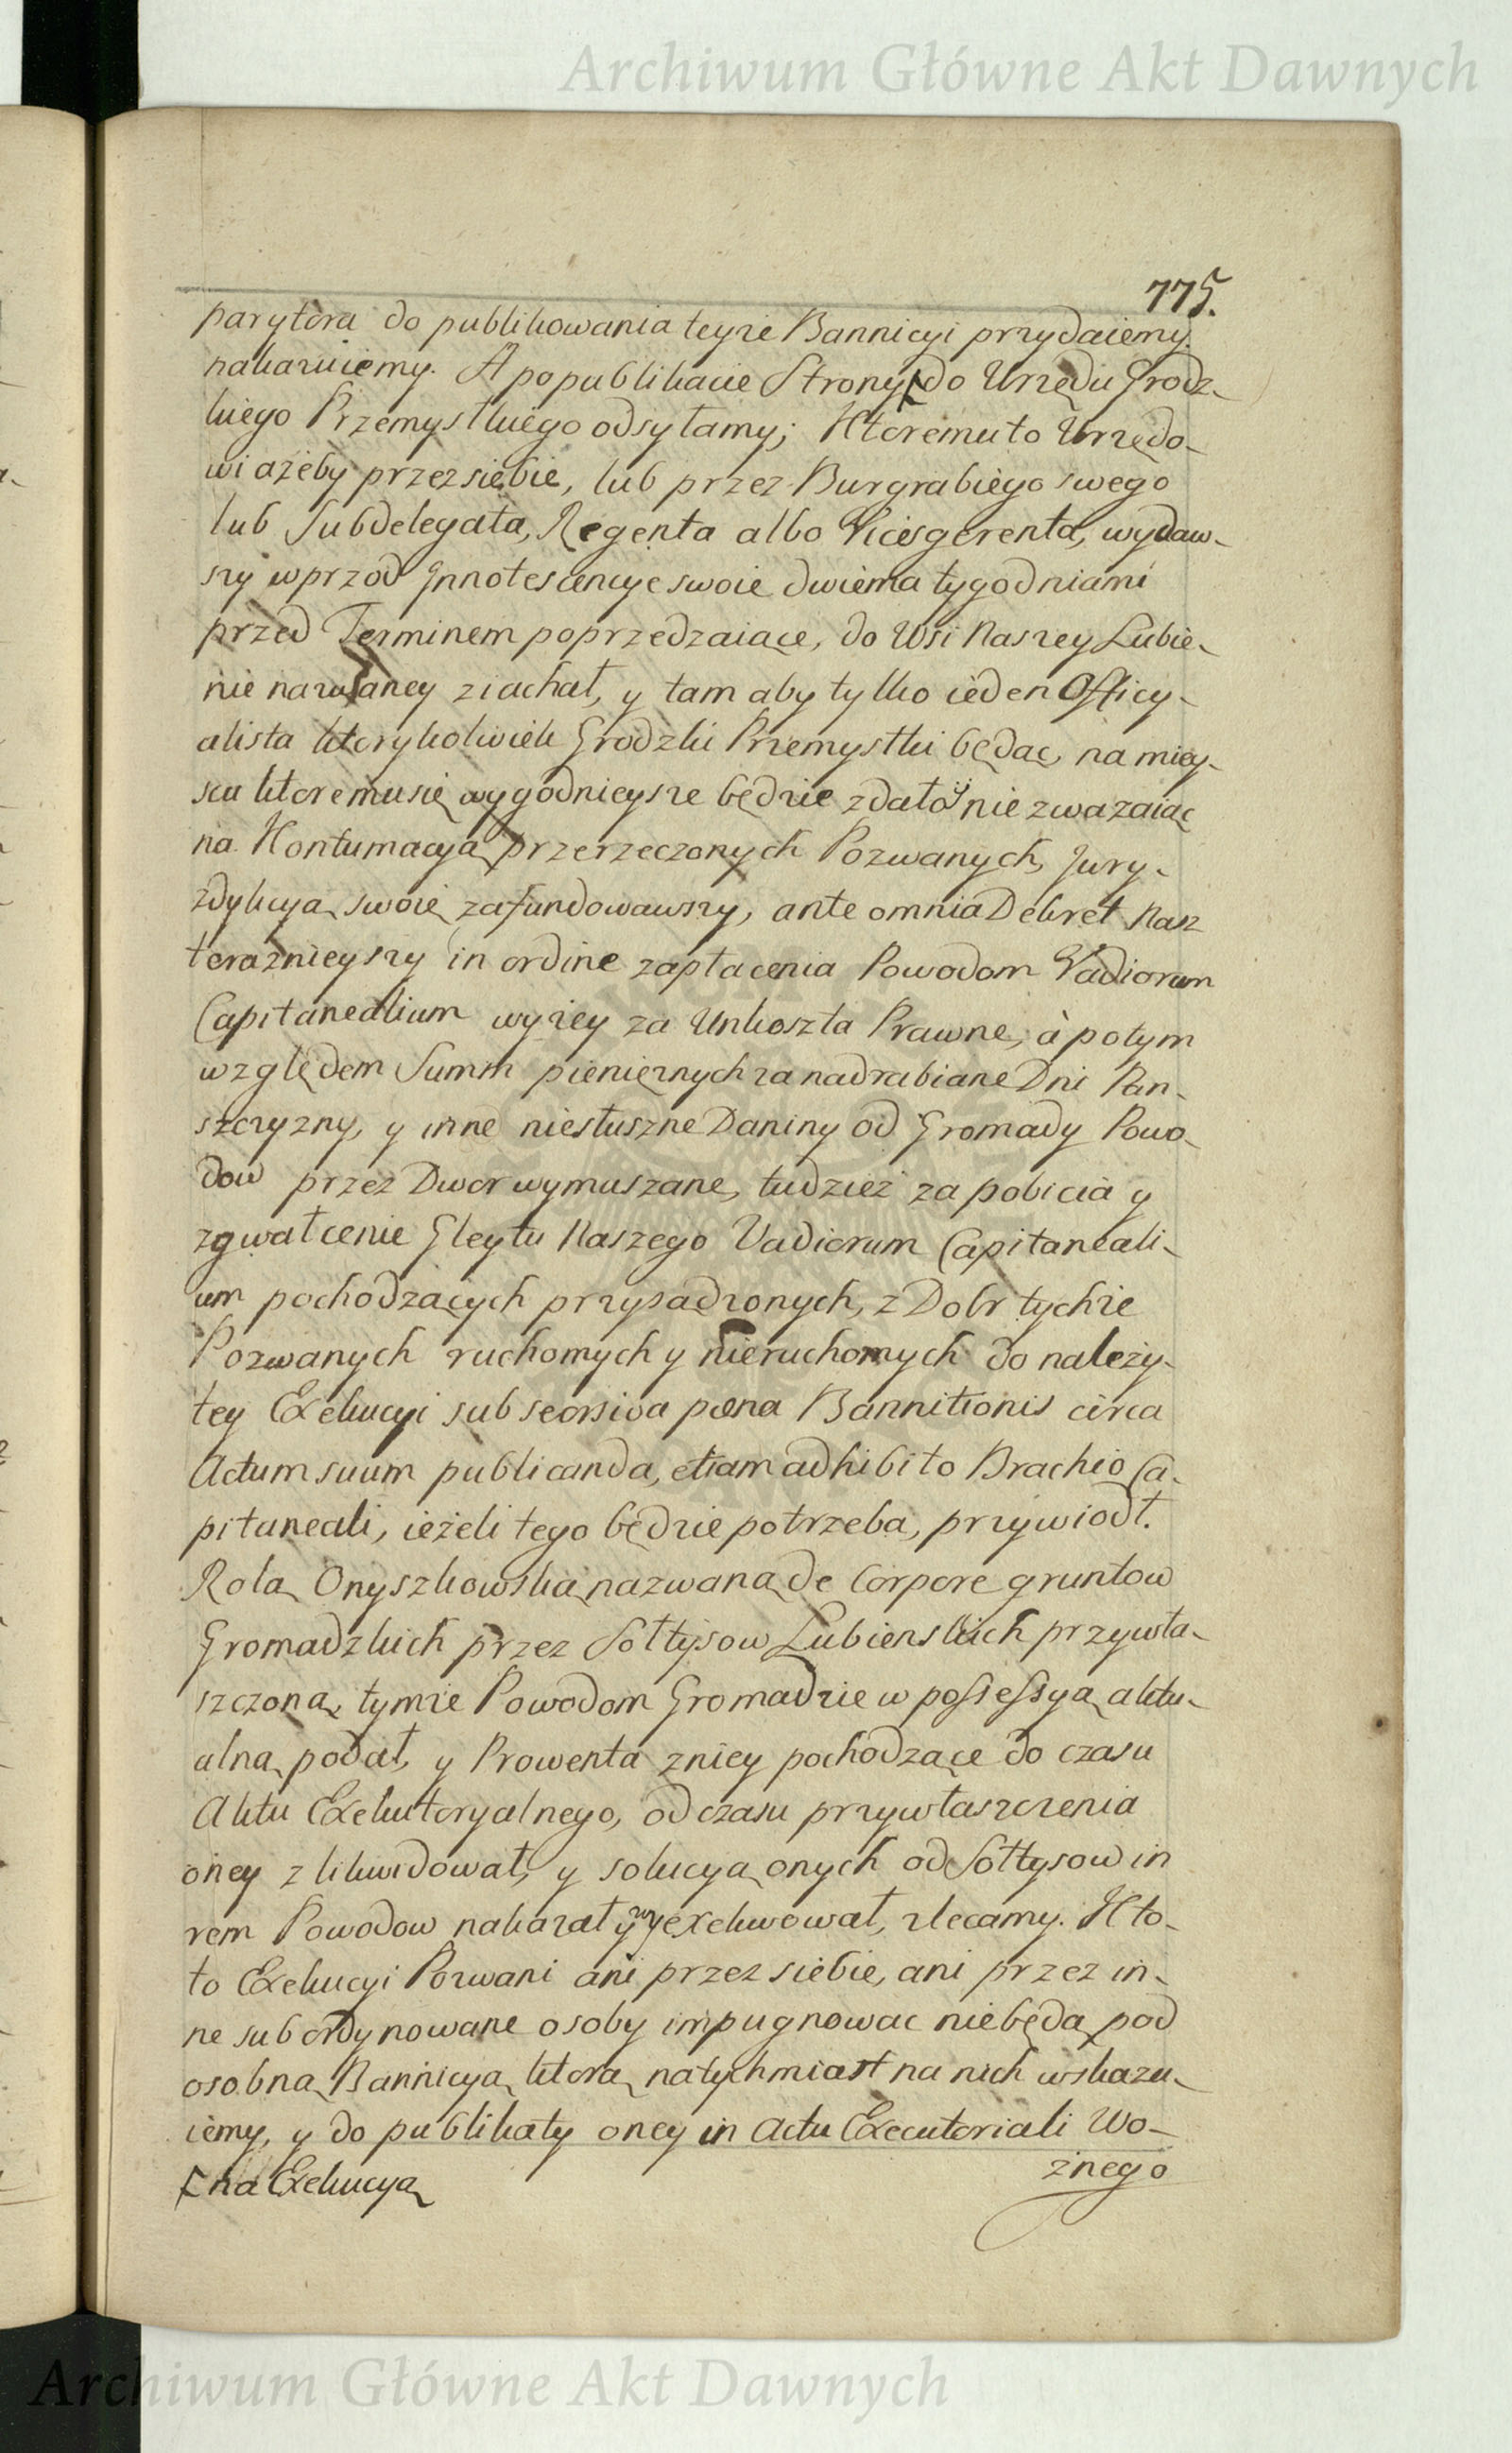 Archiwum Główne Akt Dawnych
775.
parytora do publikowania teyże Bannicyi przydaiemy
nakazuiemy. A po publikacie Strony ⌈ do Urzędu Grodz-
kiego Przemyslkiego odsyłamy; Ktoremu to Urzędo-
wi ażeby przez siebie, lub przez Burgrabiego swego
lub Subdelegata, Regenta albo Vicesgerenta, wydaw-
szy wprzod Jnnotescencye swoie dwiema tygodniami
przed Terminem poprzedzaiące, do Wsi Naszey Lubie-
nie nazwaney ziachał, y tam aby tylko ieden Officy-
alista ktorykolwiek Grodzki Przemyslki będąc, na miey-
scu ktoremu się wygodnieysze będzie zdało, nie zwazaiąc
na Kontumacyą przerzeczonych Pozwanych, Jury-
zdykcyą swoię zafundowawszy, ante omnia Dekret Nasz
teraznieyszy in ordine zapłacenia Powodom Vadiorum
Capitanealium wyżey za Unkoszta Prawne, à potym
względem Summ pieniężnych za nadrabiane Dni Pan-
szczyzny, y inne niesłuszne Daniny od Gromady Powo-
dow przez Dwor wymuszane, tudzież za pobicia y
zgwałcenie Gleytu Naszego Vadiorum Capitaneali-
um pochodzących przysądzonych, z Dobr tychże
Pozwanych ruchomych y nieruchomych do należy-
tey Exekucyi sub seorsiva pœna Bannitionis circa
Actum suum publicanda, etiam adhibito Brachio Ca-
pitaneali, ieżeli tego będzie potrzeba, przywiodł.
Rolą Onyszkowską nazwaną de Corpore gruntow
Gromadzkich przez Sołtysow Lubienskich przywła-
szczoną, tymże Powodom Gromadzie w possessyą aktu-
alną podał, y Prowenta zniey pochodzące do czasu
Aktu Exekutoryalnego, od czasu przywłaszczenia
oney zlikwidował, y solucyą onych od Sołtysow in
rem Powodow nakazał y wyexekwował, zlecamy. Kto-
to Exekucyi Pozwani ani przez siebie, ani przez in-
ne subordynowane osoby impugnowac niebędą pod
osobną Bannicyą, ktorą natychmiast na nich wskazu-
iemy, y do publikaty oney in Actu Executoriali Wo-
znego
⌈ na Exekucyą
Archiwum Główne Akt Dawnych